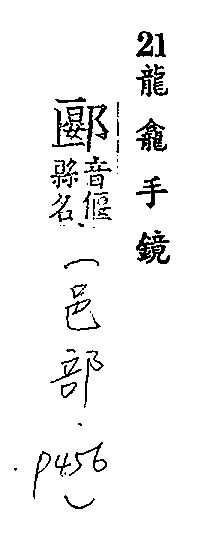 21龍龕手鏡
郾
音偃
縣名
(邑部.p456)